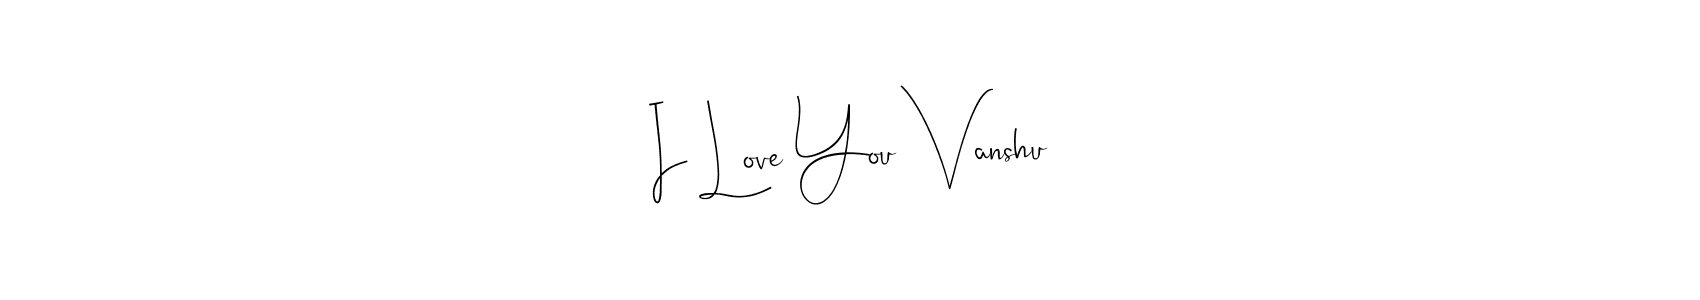 I Love You Vanshu